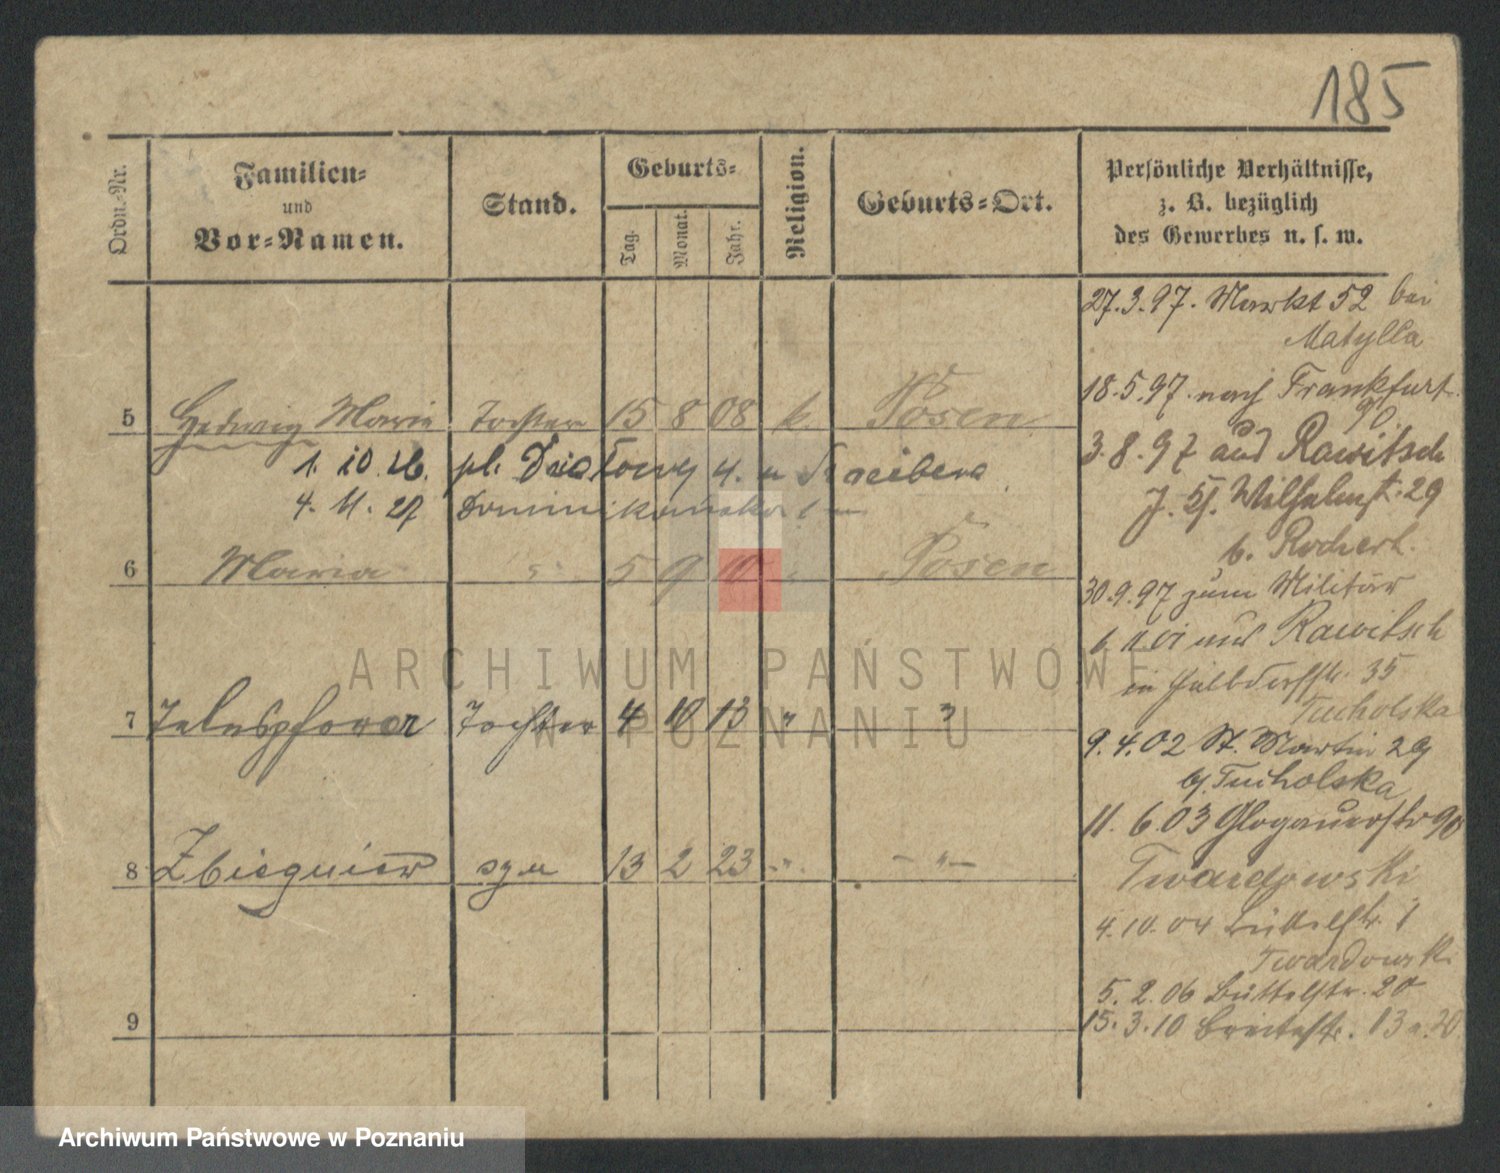 185
Ordn.-Nr.
Familien-
und
Vor-Namen.
Stand.
Geburts-
Tag.
Monat.
Jahr.
Religion.
Geburts-Ort.
Persönliche Verhältnisse,
z. B. bezüglich
des Gewerbes u. s. w.
27.3.97. Markt 52 bei
Matylla
18.5.97. nach Frankfurt
5 Hedwig Maria Tochter 15 8 08 k. Posen
3.8.97 aus Rawitsch
1. 10. 26. pl.
Wilhelmst. 29
4. 11. 27 Dominikańska
b.
6 Maria " 5 9 10 " Posen
30.9.97 zum Militär
6.11.01 aus Rawitsch
35
Tucholska
7 Tochter 4 10 13 " "
9.4.02 St. Martin 29
b/. Tucholska
11.6.03 Glogauerstr 90
Twardowski
8 Zbigniew syn 13 2 23 " "
4.10.04 Büttelstr. 1
Twardowski
5.2.06 Büttelstr. 20
9
15.3.10 Breitestr. 13
ARCHIWUM PAŃSTWOWE
W POZNANIU
Archiwum Państwowe w Poznaniu